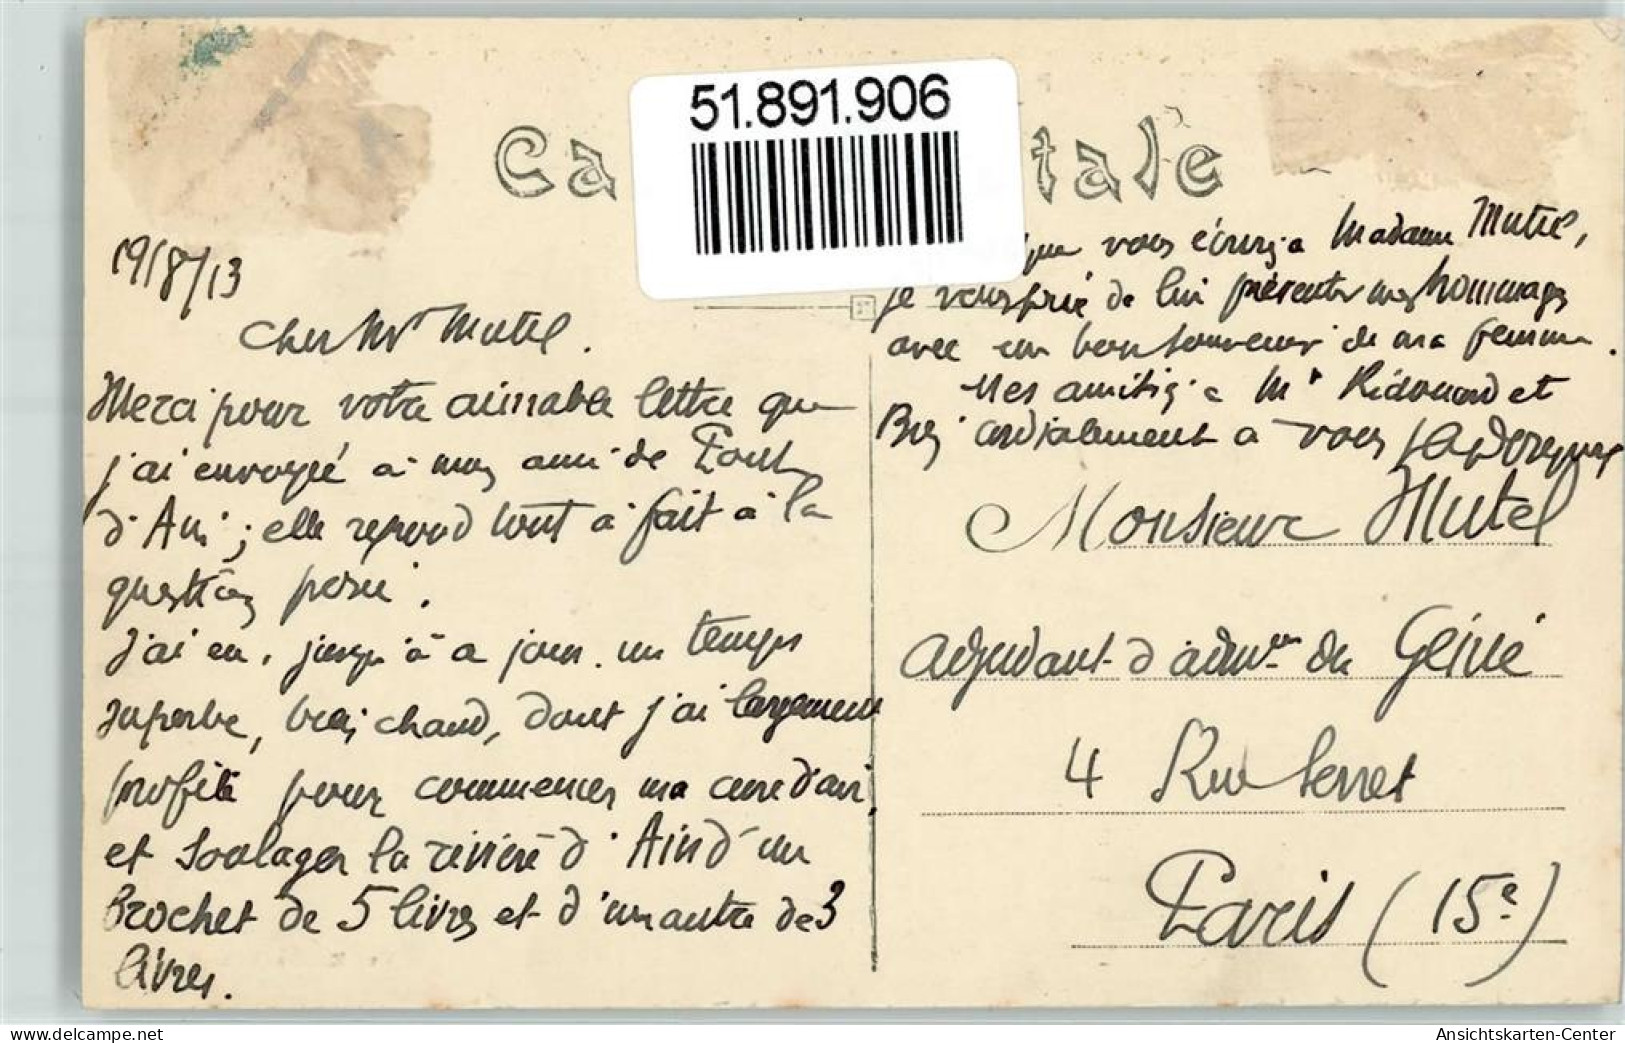 51.891.906
Ca tale
19/8/13
Cher Mr Mutel.
Merci pour votre aimable lettre que
j'ai envoyée à mon ami de Pont
d'Ain ; elle repond tout à fait à la
question posée.
J'ai eu, jusqu'à ce jour un temps
superbe, bien chaud, dont j'ai largement
profité pour commencer ma cure d'air,
et soulager la rivière d'Ain d'un
Brochet de 5 livres et d'un autre de 3
livres.
que vous écrirez à Madame Mutel,
je vous prie de lui présenter mes hommages
avec un bon souvenir de ma femme.
Mes amitiés à Mr Ridouard et
Bien cordialement à vous
Monsieur Mutel
Adjudant d'admon du Génie
4 Rue Serret
Paris (15e)
Ansichtskarten-Center
www.delcampe.net